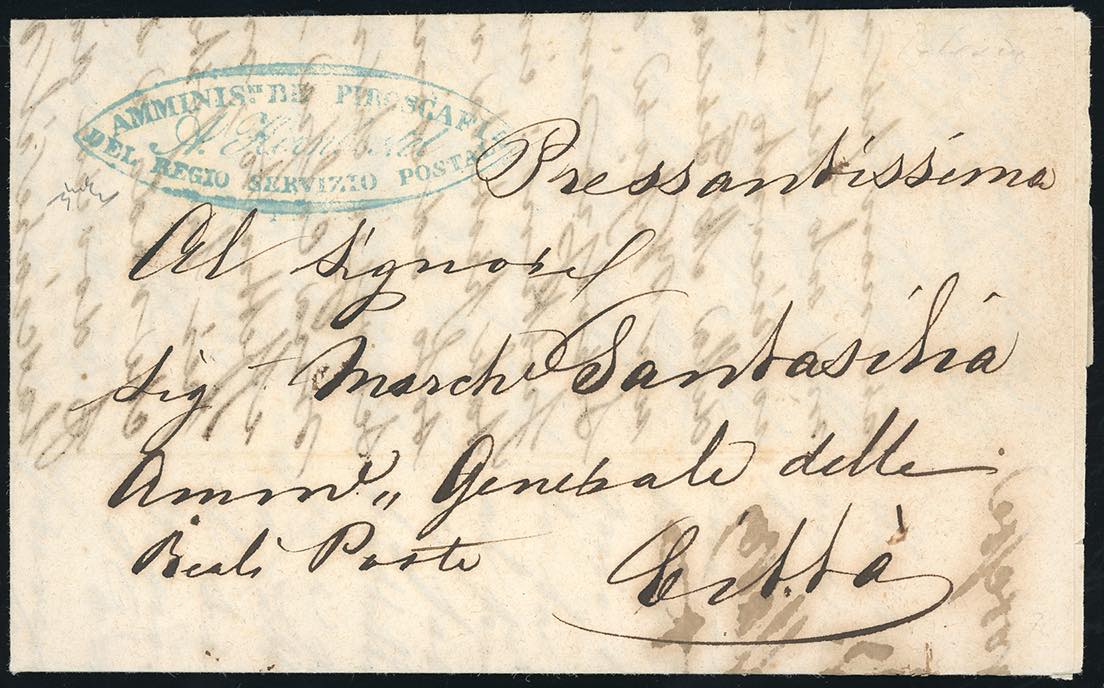 AMMINIS.NE DE PIROSCAFI
DEL REGIO SERVIZIO POSTALE
Pressantissima
Al Signore
Sig March Santasilia
Amm.e Generale delle
Reali Poste
Città